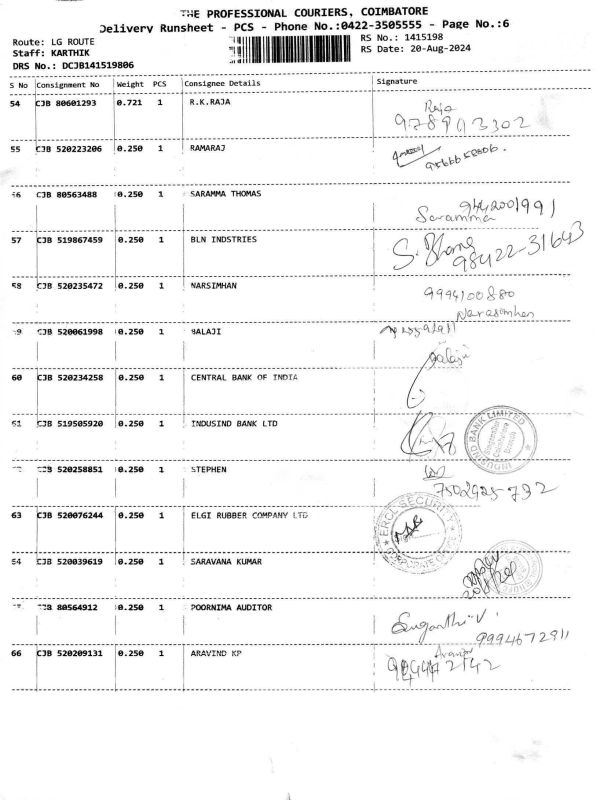 THE PROFESSIONAL COURIERS, COIMBATORE
Delivery Runsheet - PCS - Phone No.:0422-3505555 - Page No.:6
Route: LG ROUTE
RS No.: 1415198
Staff: KARTHIK
RS Date: 20-Aug-2024
DRS No.: DCJB141519806
S No Consignment No Weight PCS Consignee Details Signature
54 CJB 80601293 0.721 1 R.K.RAJA
Raja
55 CJB 520223206 0.250 1 RAMARAJ
56 CJB 80563488 0.250 1 SARAMMA THOMAS
9442001991
Saramma
57 CJB 519867459 0.250 1 BLN INDSTRIES
98422-31643
58 CJB 520235472 0.250 1 NARSIMHAN
9994100880
Narasimhan
59 CJB 520061998 0.250 1 BALAJI
Balaji
60 CJB 520234258 0.250 1 CENTRAL BANK OF INDIA
61 CJB 519505920 0.250 1 INDUSIND BANK LTD
INDUSIND BANK LIMITED
Coimbatore
Branch
CJB 520258851 0.250 1 STEPHEN
7502925-792
63 CJB 520076244 0.250 1 ELGI RUBBER COMPANY LTD
ERCL SECURITY
CORPORATE
64 CJB 520039619 0.250 1 SARAVANA KUMAR
CJB 80564912 0.250 1 POORNIMA AUDITOR
Suganthi.V.
9994672911
66 CJB 520209131 0.250 1 ARAVIND KP